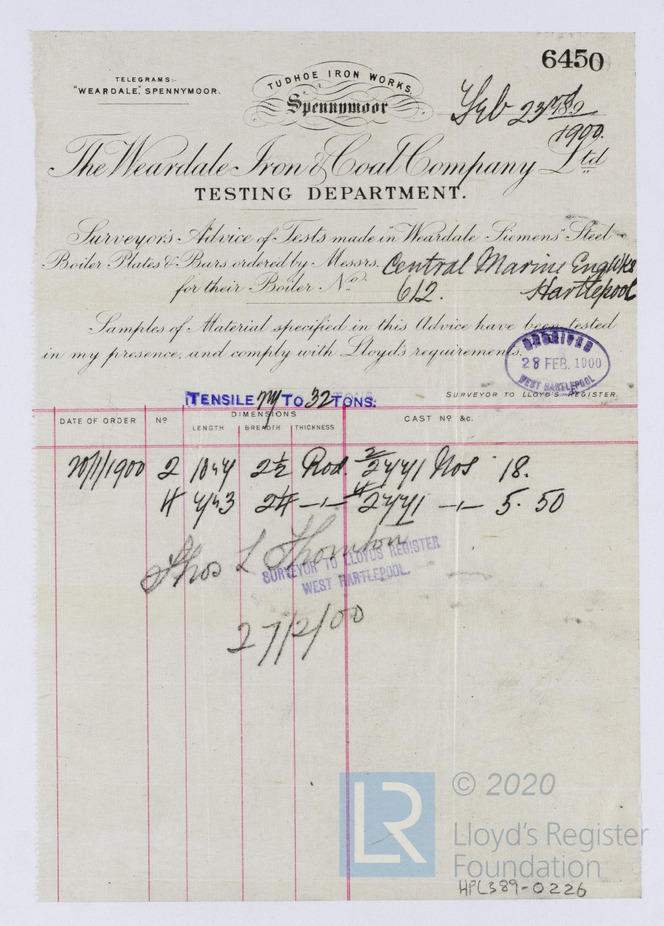 6450
TELEGRAMS:-
"WEARDALE," SPENNYMOOR.
TUDHOE IRON WORKS.
Spennymoor
Feb 23rd 1900.
The Weardale Iron & Coal Company Ltd
TESTING DEPARTMENT.
Surveyor's Advice of Tests made in "Weardale Siemens" Steel
Boiler Plates & Bars ordered by Messrs. Central Marine Eng Wks
for their Boiler No. 612. Hartlepool
Samples of Material specified in this Advice have been tested
in my presence, and comply with Lloyd's requirements.
RECEIVED
28 FEB. 1900
WEST HARTLEPOOL
SURVEYOR TO LLOYD'S REGISTER
TENSILE 27 TO 32 TONS.
DATE OF ORDER Nº DIMENSIONS CAST Nº &c.
LENGTH BREADTH THICKNESS
20/1/1900 2 2½ Rod. 2 2771 Nos 18.
4 4 2771 -"- 5. 50
Thos L Thornton
SURVEYOR TO LLOYDS REGISTER
WEST HARTLEPOOL.
27/2/00
LR
© 2020
Lloyd's Register
Foundation
HPL389-0226